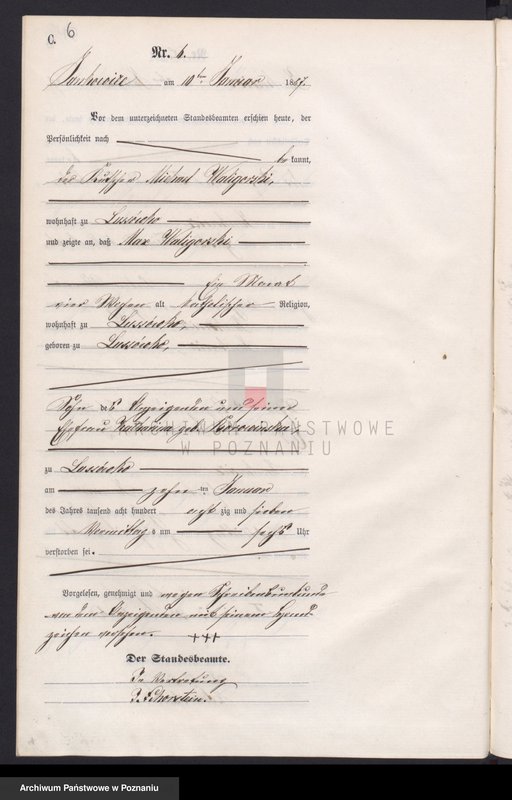 C. 6
Nr. 6.
am 10ten Januar 1887.
Vor dem unterzeichneten Standesbeamten erschien heute, der
Persönlichkeit nach
be kannt,
der Kutscher Michael Waligorski,
wohnhaft zu
und zeigte an, daß Max Waligorski
Ein Monat
vier Wochen alt katholischer Religion,
wohnhaft zu
geboren zu
Sohn des Anzeigenden und seiner
Ehefrau geb.
zu
am zehn ten Januar
des Jahres tausend acht hundert acht zig und sieben
Vormittag s um sechs Uhr
verstorben sei.
Vorgelesen, genehmigt und wegen Schreibensunkunde
von dem Anzeigenden mit seinem Hand-
zeichen versehen. +++
Der Standesbeamte.
In Vertretung
ARCHIWUM PAŃSTWOWE
W POZNANIU
Archiwum Państwowe w Poznaniu